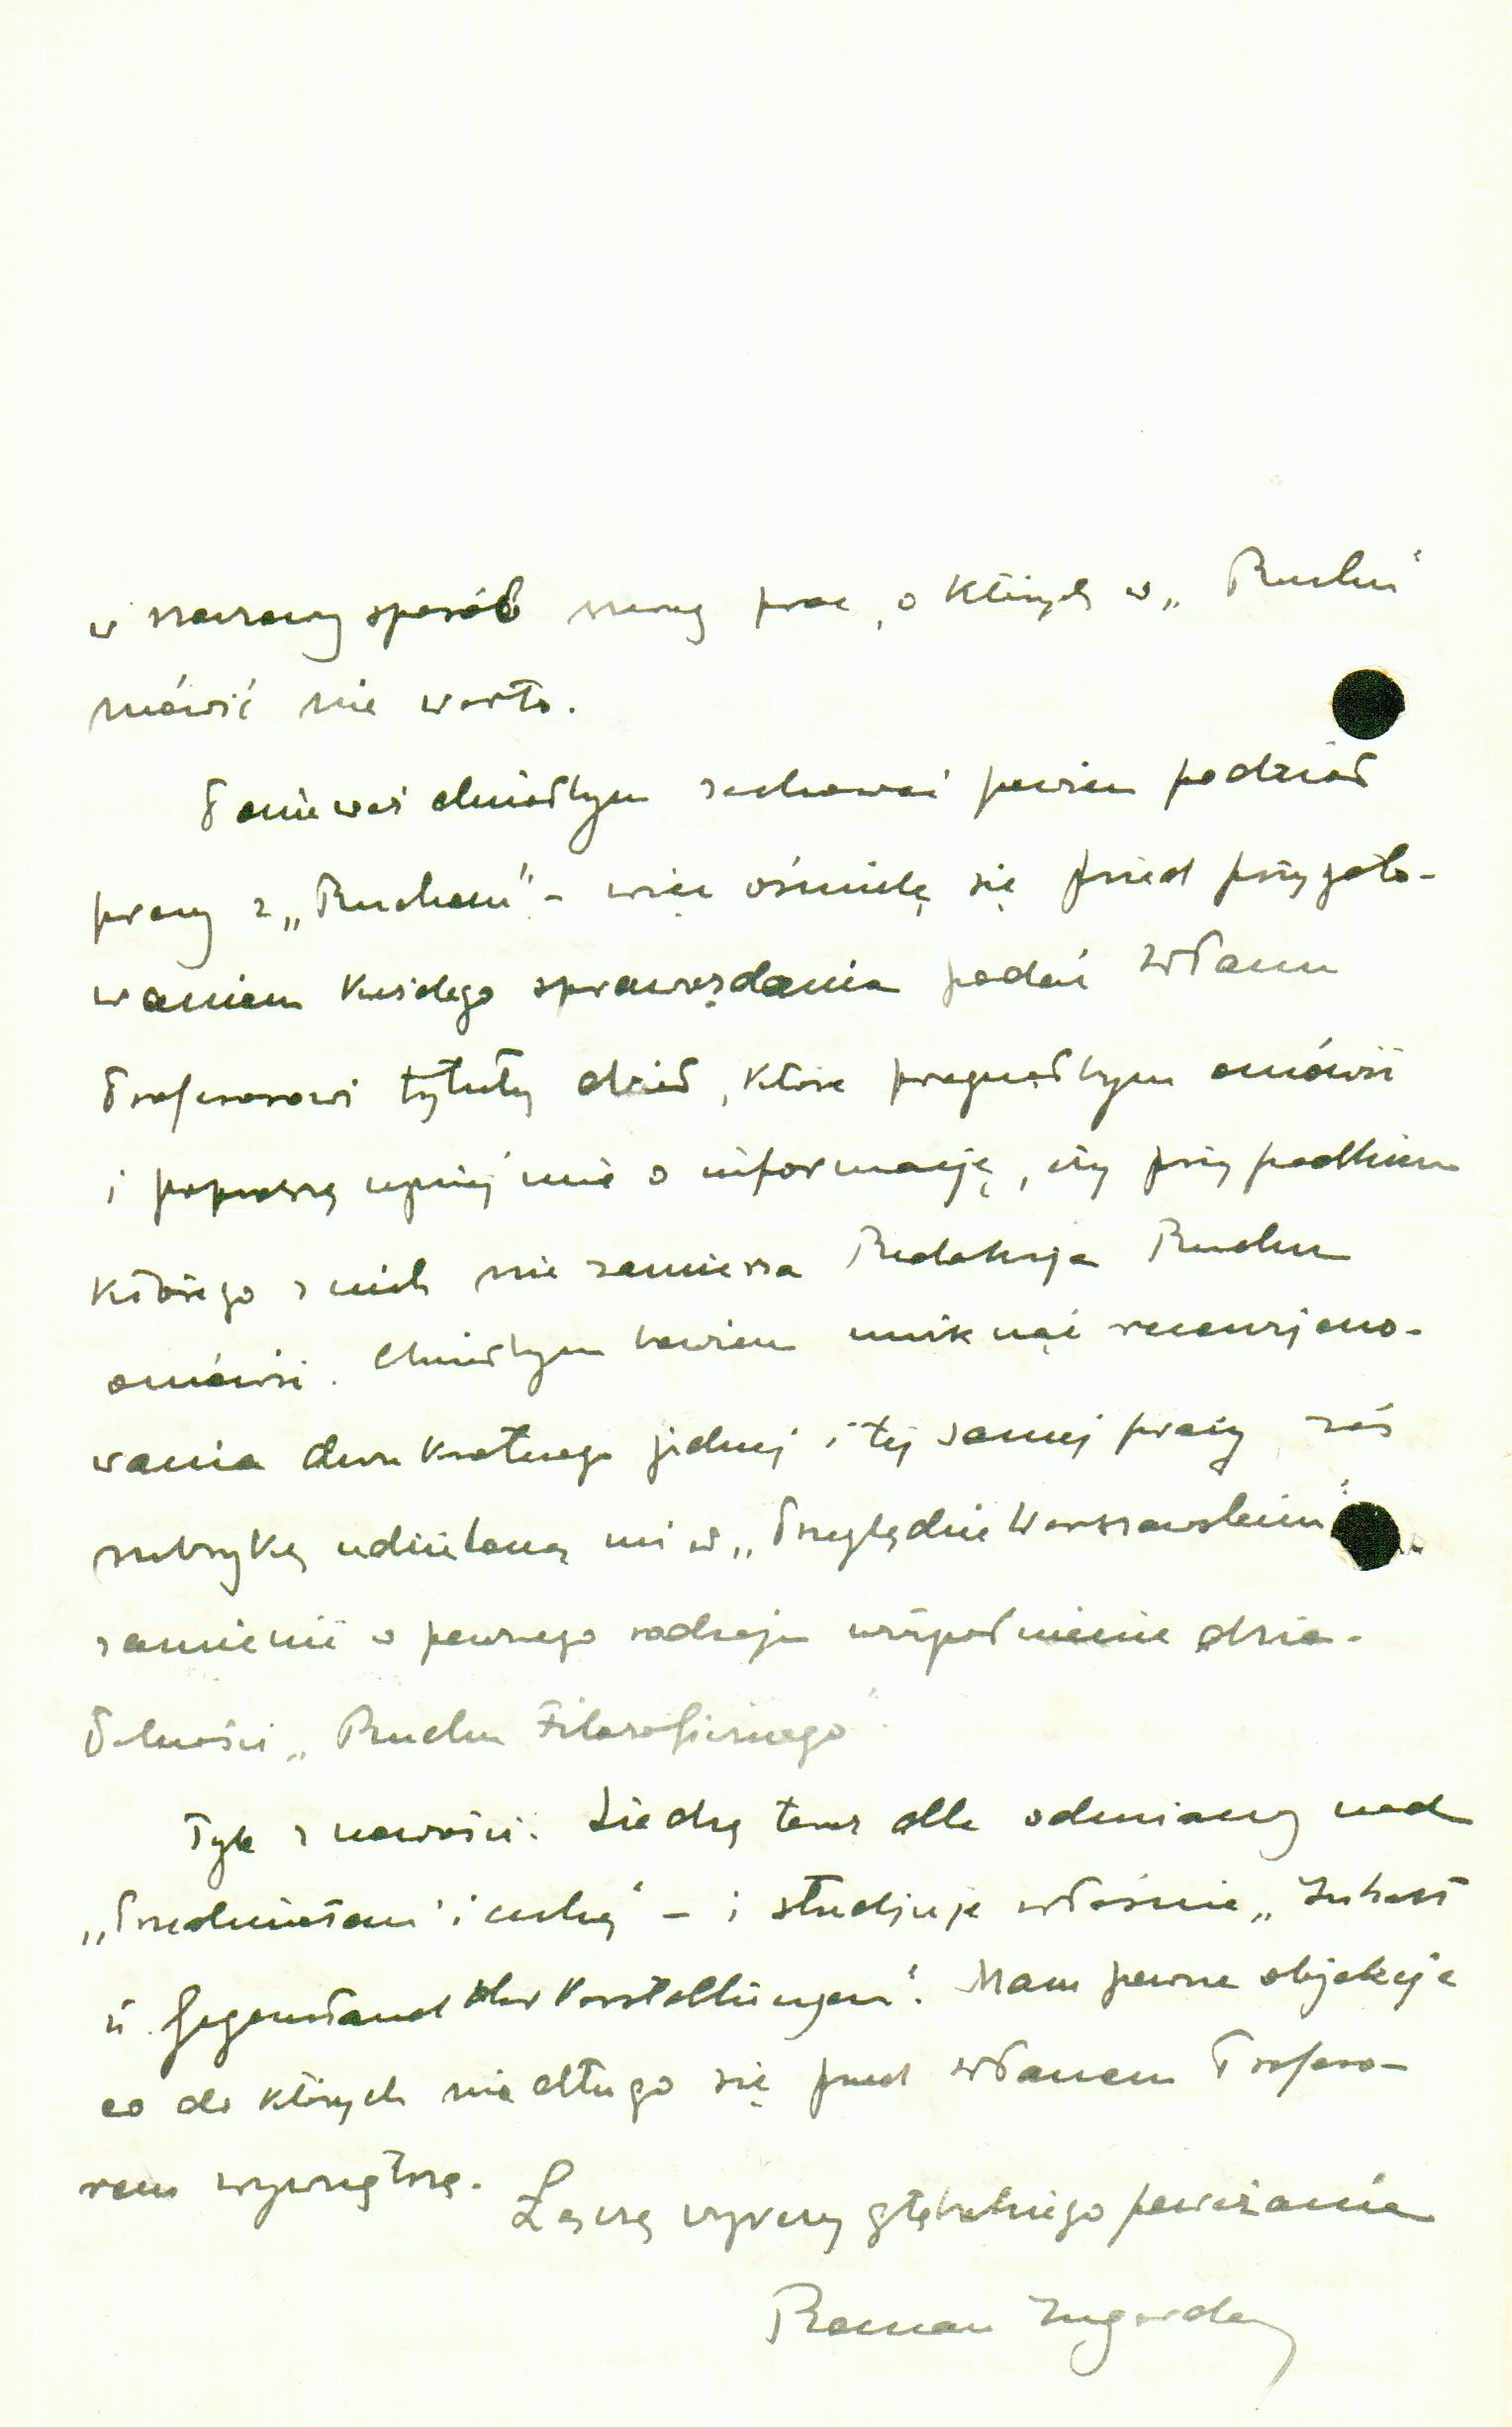 w rzeczowy sposób szereg prac, o których w „Ruchu“
mówić nie warto.
Ponieważ chciałbym zachować pewien podział
pracy z „Ruchem“ – więc ośmielę się przed przygoto-
waniem każdego sprawozdania podać WPanu
Profesorowi tytuły dzieł, które pragnąłbym omówić
i poproszę uprzejmie o informację, czy przypadkiem
którego z nich nie zamierza Redakcja Ruchu
omówić. Chciałbym bowiem uniknąć recenzjono-
wania dwukrotnego jednej i tej samej pracy, zaś
rubrykę udzieloną mi w „Przeglądzie Warszawskim“
zamienić w pewnego rodzaju uzupełnienie dzia-
łalności „Ruchu Filozoficznego“.
Tyle z nowości. Siedzę teraz dla odmiany nad
„Przedmiotem i cechą“ – i studjuję właśnie „Inhalt
u. Gegenstand der Vorstellungen“. Mam pewne objekcje
co do których niedługo się przed WPanem Profeso-
rem wywnętrzę.
Łączę wyrazy głębokiego poważania
Roman Ingarden